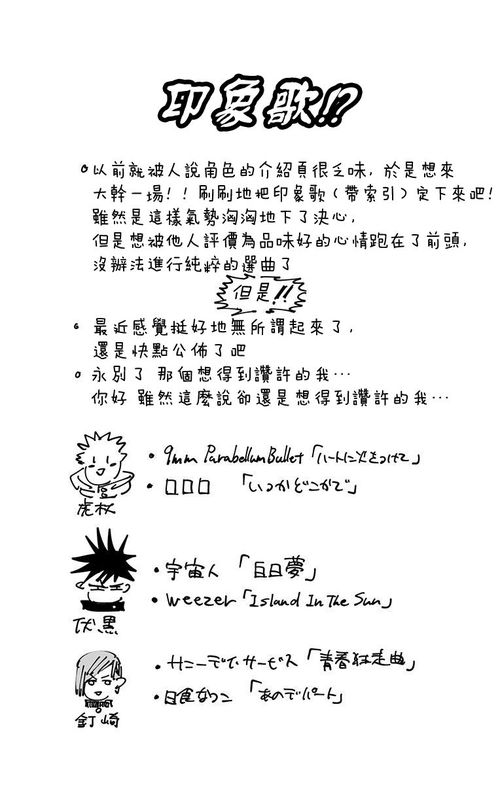 印象歌!?
以前就被人說角色的介紹頁很乏味, 於是想來
大幹一場!! 刷刷地把印象歌(帶索引)定下來吧!
雖然是這樣氣勢洶洶地下了決心,
但是想被他人評價為品味好的心情跑在了前頭,
沒辦法進行純粹的選曲了
但是!!
最近感覺挺好地無所謂起來了,
還是快點公佈了吧
永別了 那個想得到讚許的我…
你好 雖然這麼說卻還是想得到讚許的我…
・9mm Parabellum Bullet「ハートに火をつけて」
・ロロロ 「いつかどこかで」
虎杖
・宇宙人 「白日夢」
・weezer「Island In The Sun」
伏黒
・サニーデイ・サービス「青春狂走曲」
・日食なつこ 「あのデパート」
釘崎